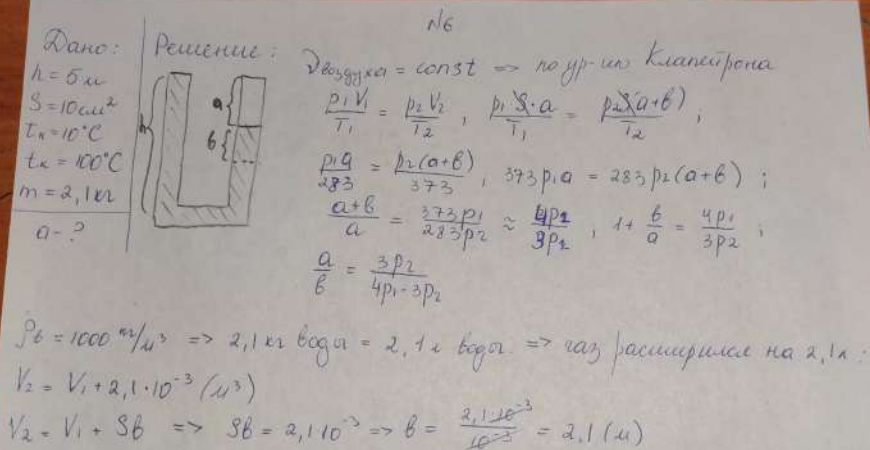 №6
Дано:
h = 5м
S = 10см²
tн = 10°C
tк = 100°C
m = 2,1кг
a - ?
Решение:
h
a
b
νвоздуха = const => по ур-ию Клапейрона
p₁V₁/T₁ = p₂V₂/T₂ , p₁S·a/T₁ = p₂S(a+b)/T₂ ;
p₁a/283 = p₂(a+b)/373 , 373p₁a = 283p₂(a+b) ;
(a+b)/a = 373p₁/283p₂ ≈ 4p₂/3p₂ , 1 + b/a = 4p₁/3p₂ ;
a/b = 3p₂/(4p₁-3p₂)
ρв = 1000 кг/м³ => 2,1кг воды = 2,1л воды. => газ расширился на 2,1л:
V₂ = V₁ + 2,1·10⁻³ (м³)
V₂ = V₁ + Sb => Sb = 2,1·10⁻³ => b = 2,1·10⁻³/10⁻³ = 2,1 (м)